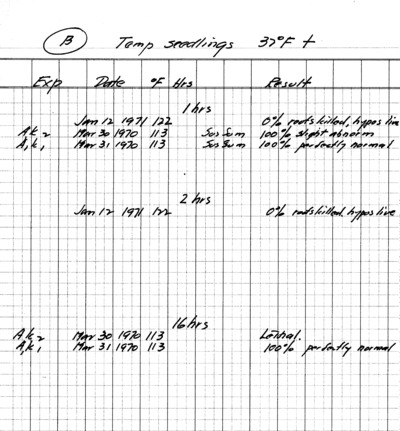 B Temp seedlings 37°F +
Exp Date °F Hrs Result
1 hrs
Jan 12 1971 122 0% roots killed, hypos live
Ak2 Mar 30 1970 113 100% slight abnorm
A,k, Mar 31 1970 113 100% perfectly normal
2 hrs
Jan 12 1971 122 0% roots killed. hypos live
16 hrs
Ak2 Mar 30 1970 113 Lethal.
A,k, Mar 31 1970 113 100% perfectly normal